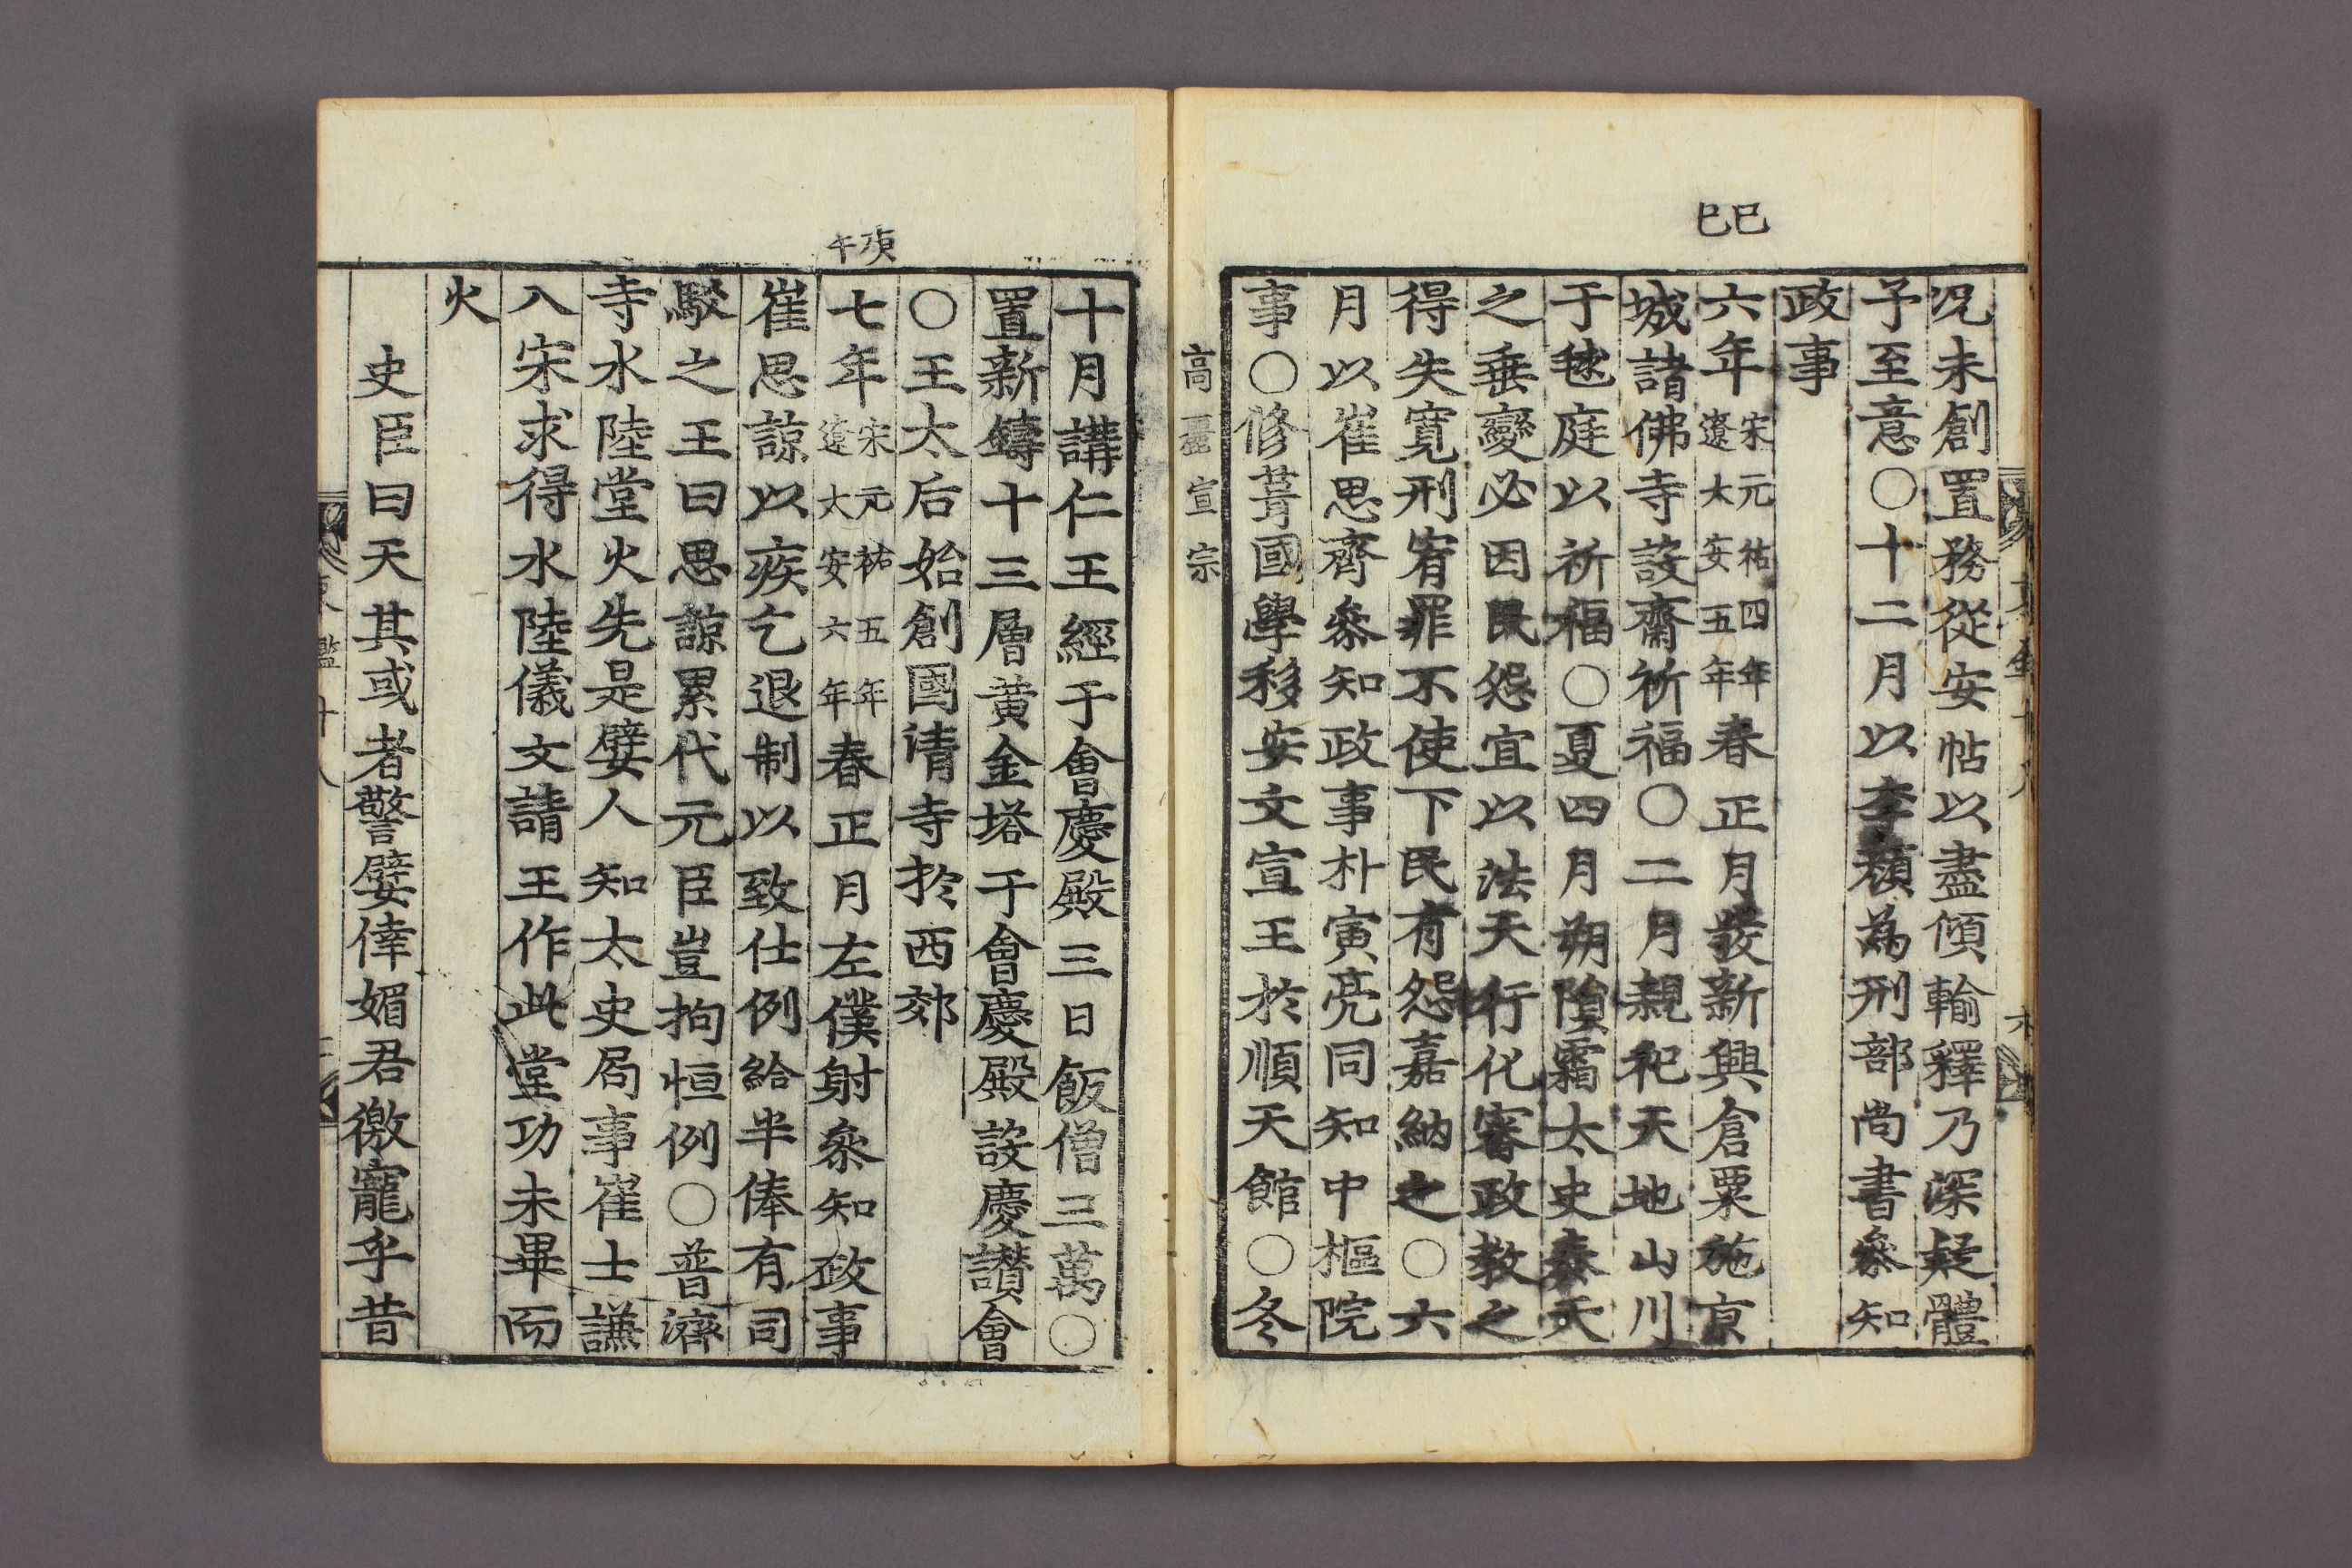 己巳
況未創置務從安帖以盡傾輸釋乃深疑體
予至意〇十二月以李䫨爲刑部尚書叅知
政事
六年宋元祐四年遼大安五年春正月發新興倉粟施京
城諸佛寺設齋祈福〇二月親祀天地山川
于毬庭以祈福〇夏四月朔隕霜太史奏天
之垂變必因民怨宜以法天行化審政教之
得失寬刑宥罪不使下民有怨嘉納之〇六
月以崔思齊叅知政事朴寅亮同知中樞院
事〇修葺國學移安文宣王於順天館〇冬
高麗宣宗
庚午
十月講仁王經于會慶殿三日飯僧三萬〇
置新鑄十三層黃金塔于會慶殿設慶讃會
〇王太后始創國清寺於西郊
七年宋元祐五年遼大安六年春正月左僕射叅知政事
崔思諒以疾乞退制以致仕例給半俸有司
駮之王曰思諒累代元臣豈拘恒例〇普濟
寺水陸堂火先是嬖人知太史局事崔士謙
入宋求得水陸儀文請王作此堂功未畢而
火
史臣曰天其或者警嬖倖媚君徼寵乎昔
東鑑十八